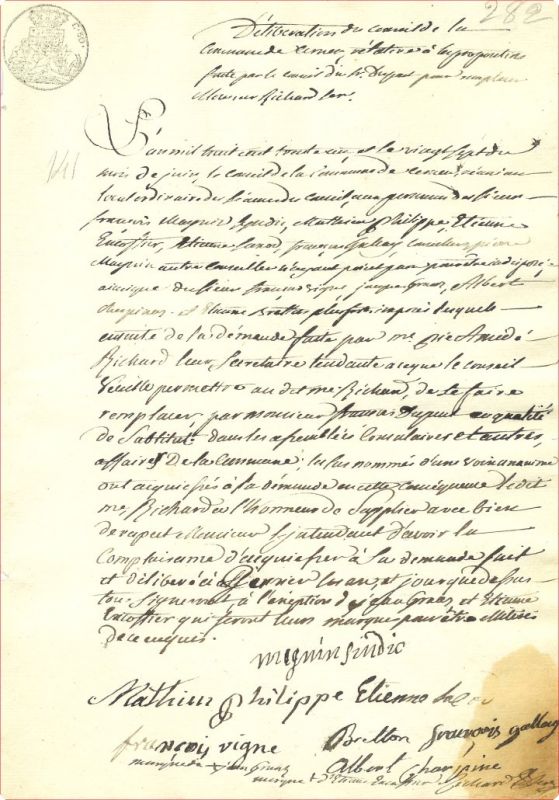 282
Déliberation du conseil de la
Commune de relative à la proposition
faite par le conseil du Sr. Duput pour remplacer
Monsieur Richard
L'an mil huit cent trente un et le vingt sept du
mois de juin, le conseil de la Commune de réuni au
lieu ordinaire de ses séances du conseil aux personnes des sieurs
françois Magnin Sindic, Mathieu Philippe, Etienne
Etienne françois Gallay Conseillers, pierre
Magnin autre Conseiller n'ayant point paru pour être indisposé
ainsique des sieurs francois vigne jacques Albert
Charpine et Etienne plus forts imposés lesquels
ensuite de la demande faite par me. Amedé
Richard leur Secretaire tendante a ce que le conseil
veuille permettre au dit me. Richard, de se faire
remplacer par monsieur francois Duput en qualité
de Substitut dans les assemblées Consulaires et autres
affaires De la Commune; les sus nommés d'une voix unanime
ont acquiessés à la demande en cette consequence le dit
me. Richard a l'honneur de Supplier avec bien
de respect Monsieur l'jntendant d'avoir la
Complaisance d'acquiesser à Sa demande fait
et déliberé à les an, et jour que dessus
tous Signeront à l'exéption de jean et Etienne
qui feront leurs marques pour être illitérés
de ce enquis.
magnin sindic
Mathieu Philippe Etienne
françois vigne Bretton francois gallay
marque de x Albert Charpine
marque + d'Etienne Richard